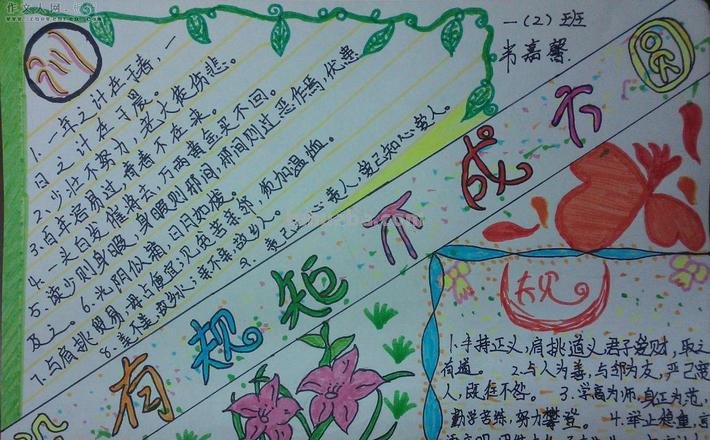 训
一(2)班
韦嘉馨
有规矩不成方
1.一年之计在于春,一
日之计在于晨。
2.少壮不努力,老大徒伤悲。
3.百年容易过,青春不在来。
4.一头白发催将去,万两黄金买不回。
5.欲少则身暇,身暇则邪间,邪间则过恶作焉,优患
及之。 6.光阴似箭,日月如梭。
7.与肩挑贸易,毋占便宜;见贫苦亲邻,须加温恤。
8.美不美故乡水;亲不亲故乡人。
9.责己之心责人,爱己知心爱人。
规
1.手持正义,肩挑道义,君子爱财,取之
有道。 2.与人为善,与邻为友,严己宽
人,既往不咎。 3.学高为师,身正为范,
勤学苦练,努力攀登。 4.举止稳重,言